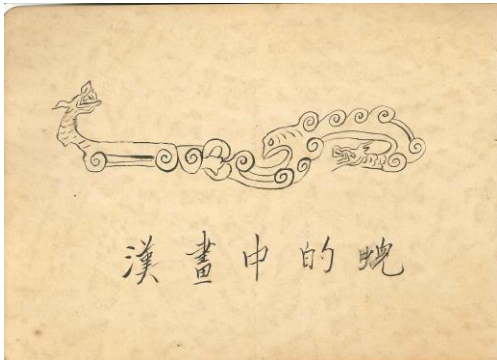 漢畫中的蜺